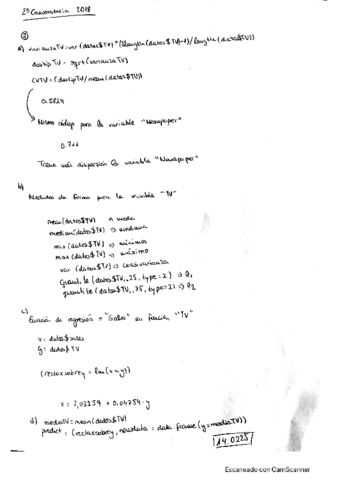 2ª Convocatoria 2018
②
a) varianzaTV = var (datos$TV) * ((length(datos$TV)-1)/length(datos$TV))
destipTV = sqrt(varianzaTV)
CVTV = (destipTV/mean(datos$TV))
0.5824
Mismo código para la variable "Newspaper"
0.711
Tiene más dispersión la variable "Newspaper"
b)
Medidas de forma para la variable "TV"
mean(datos$TV) => media
median(datos$TV) => mediana
min(datos$TV) => mínimo
max(datos$TV) => máximo
var (datos$TV) => cuasivarianza
quantile(datos$TV,.25, type=2) => Q1
quantile(datos$TV,.75, type=2) => Q2
c)
Ecuación de regresión = "Sales" en función "TV"
x = datos$sales
y = datos$TV
(rectaxsobrey = lm(x~y))
x = 7,03259 + 0,04754·y
d) mediaTV = mean(datos$TV)
predict = (rectaxsobrey, newdata = data.frame(y=mediaTV))
14.0225
Escaneado con CamScanner